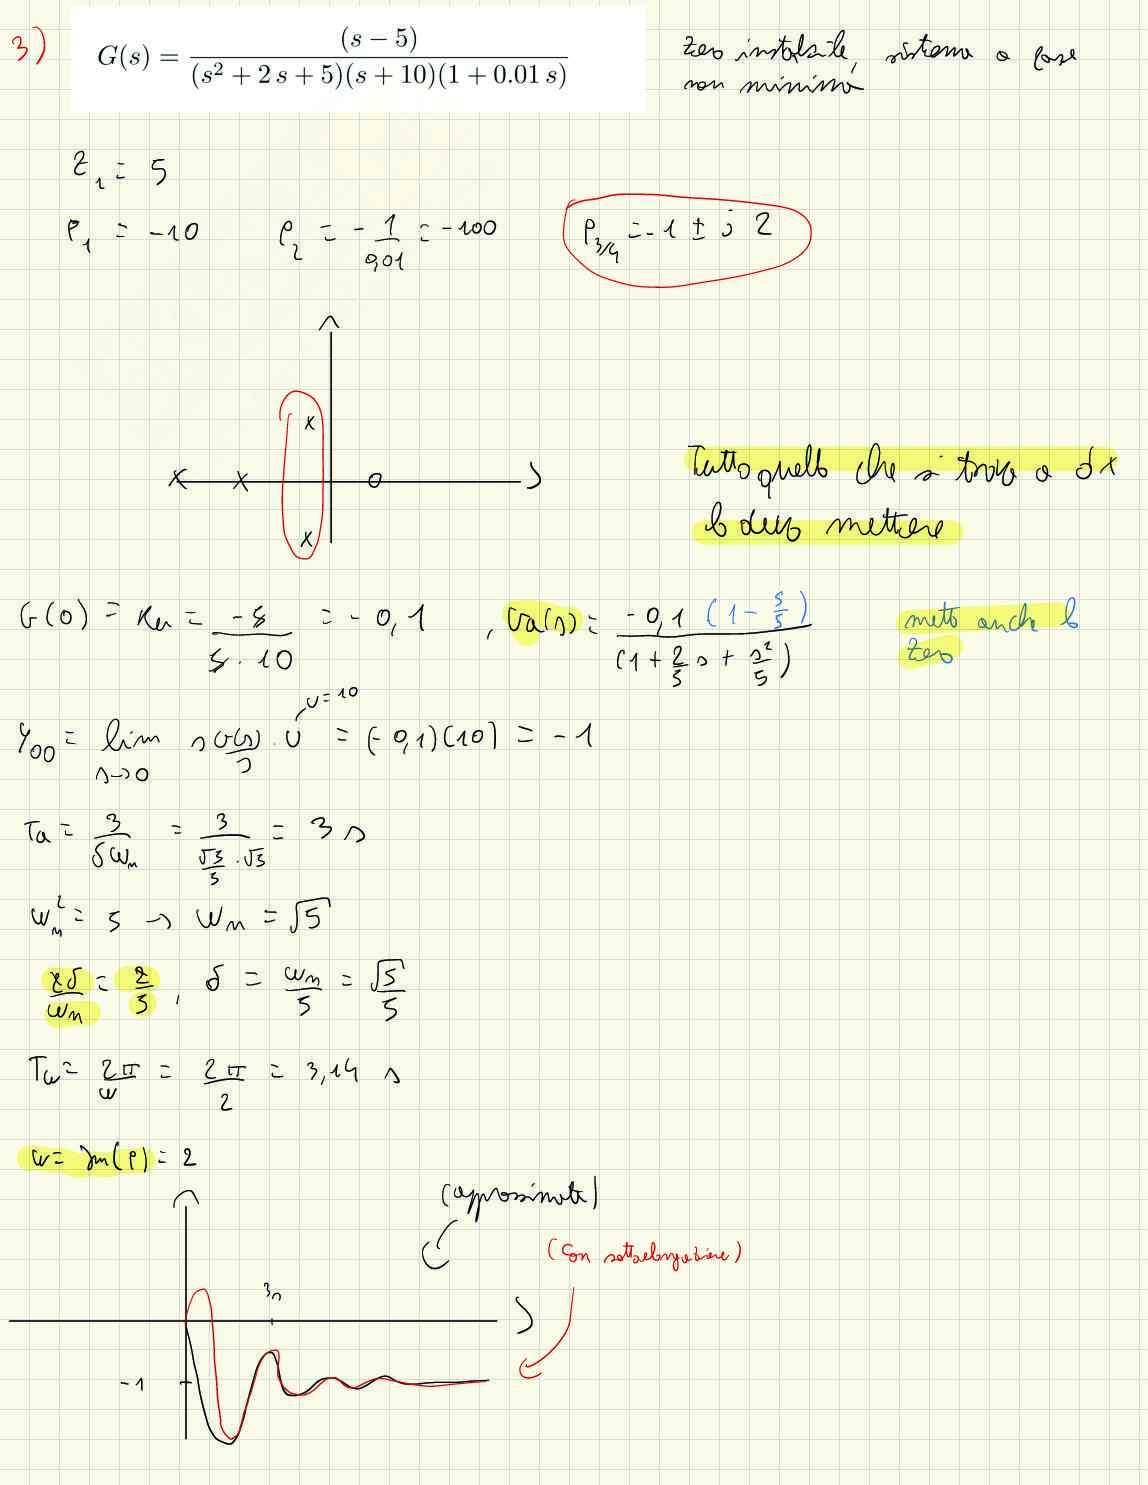 3)
G(s) = (s − 5) / ((s² + 2 s + 5)(s + 10)(1 + 0.01 s))
zero instabile, sistema a fase
non minima
z₁ = 5
p₁ = -10 p₂ = - 1/0,01 = -100 p₃/₄ = -1 ± j 2
Tutto quello che si trova a dx
lo devo mettere
G(0) = = -5/(5 · 10) = -0,1 , Ga(s) = -0,1 (1 - s/5) / (1 + 2/5 s + s²/5)
metto anche lo
zero
U = 10
y∞ = lim s→0 s G(s)/s · U = (-0,1)(10) = -1
Ta = 3/(δωn) = 3/(√5/5 · √5) = 3 s
ωn² = 5 → ωn = √5
2δ/ωn = 2/5 , δ = ωn/5 = √5/5
Tω = 2π/ω = 2π/2 = 3,14 s
ω = Im(p) = 2
(approssimata)
(con sottoelongazione)
3s
-1